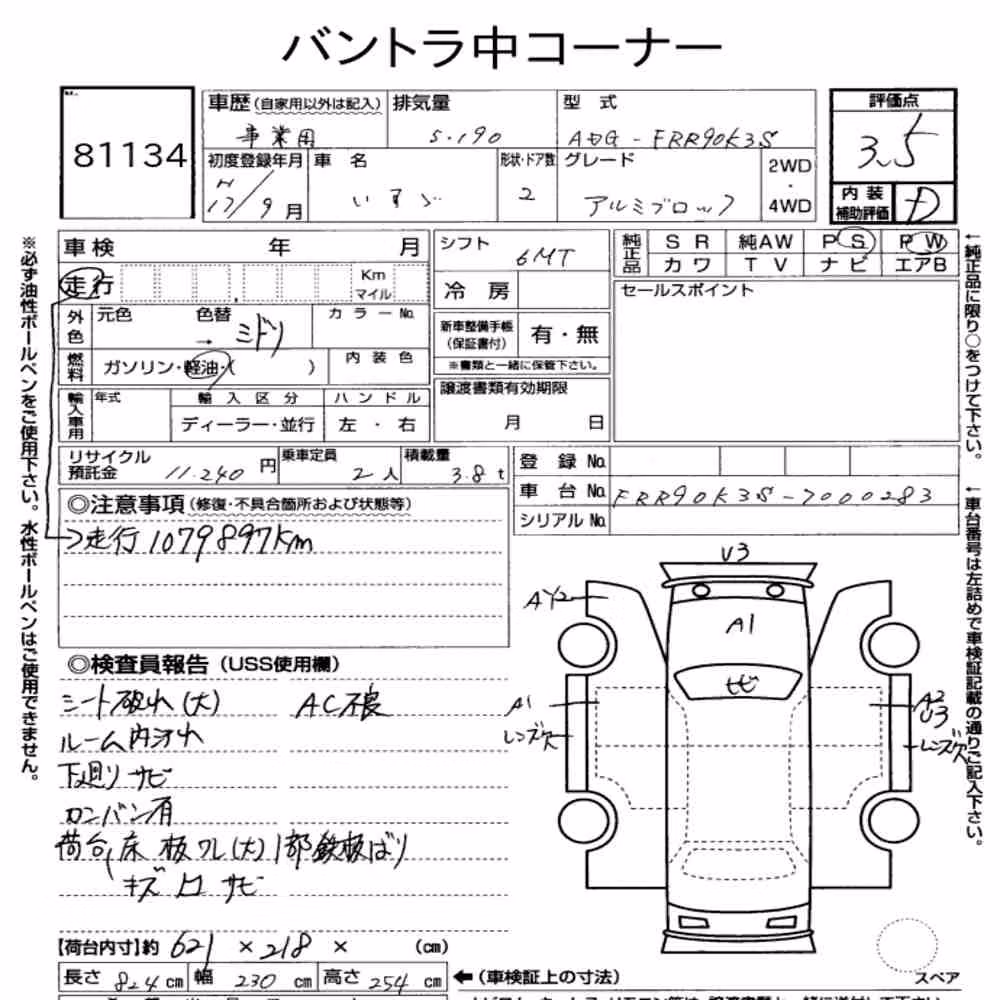 バントラ中コーナー
81134
車歴 (自家用以外は記入) 排気量 型 式
事業用 5.190 ADG-FRR90K3S
初度登録年月 車 名 形状・ドア数 グレード 2WD・4WD
H17/9月 いすゞ 2 アルミブロック
評価点
3.5
内装補助評価 D
車検 年 月
走行 Km マイル
外色 元色 色替 カラーNo.
→ ミドリ
燃料 ガソリン・軽油・( ) 内装色
輸入車用 年式 輸入区分 ハンドル
ディーラー・並行 左・右
リサイクル預託金 11.240円 乗車定員 2人 積載量 3.8t
シフト 6MT
冷房
新車整備手帳 (保証書付) 有・無
※書類と一緒に保管下さい。
譲渡書類有効期限
月 日
純正品 SR 純AW PS PW
カワ TV ナビ エアB
セールスポイント
登録No.
車台No. FRR90K3S-7000283
シリアルNo.
◎注意事項 (修復・不具合箇所および状態等)
→走行1079897km
◎検査員報告 (USS使用欄)
シート破れ(大) AC不良
ルーム内汚れ
下廻りサビ
カンバン有
荷台床板ワレ(大)1部鉄板ばり
キズ 凹 サビ
【荷台内寸】約 621 × 218 × (cm)
長さ 824cm 幅 230cm 高さ 254cm ←(車検証上の寸法)
U3
AY2
A1
ヒビ
A1
レンズ欠
A2
U3
レンズ欠
スペア
※必ず油性ボールペンをご使用下さい。水性ボールペンはご使用できません。
←純正品に限り○をつけて下さい。
←車台番号は左詰めで車検証記載の通りご記入下さい。